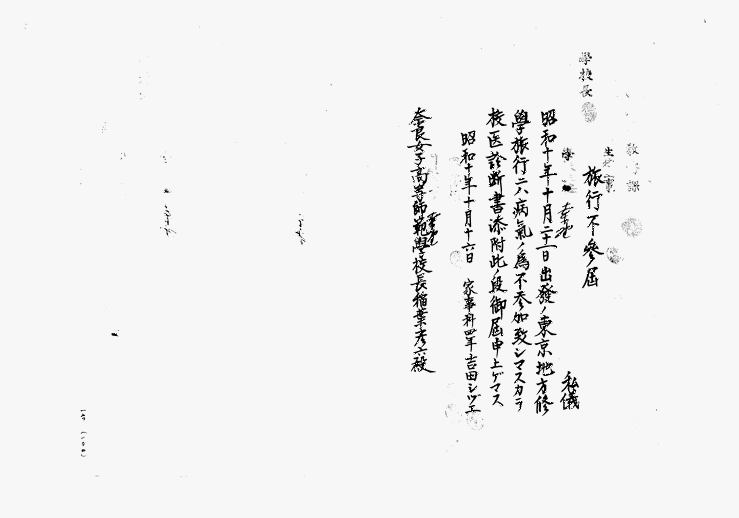 學校長
旅行不參屆
私儀
昭和十年十月二十一日出發ノ東京地方修
學旅行ニハ病氣ノ爲不參加致シマスカラ
校医診断書添附此ノ段御屆申上ゲマス
昭和十年十月十六日 家事科四年 吉田シヅエ
奈良女子高等師範學校長稲葉彦六殿